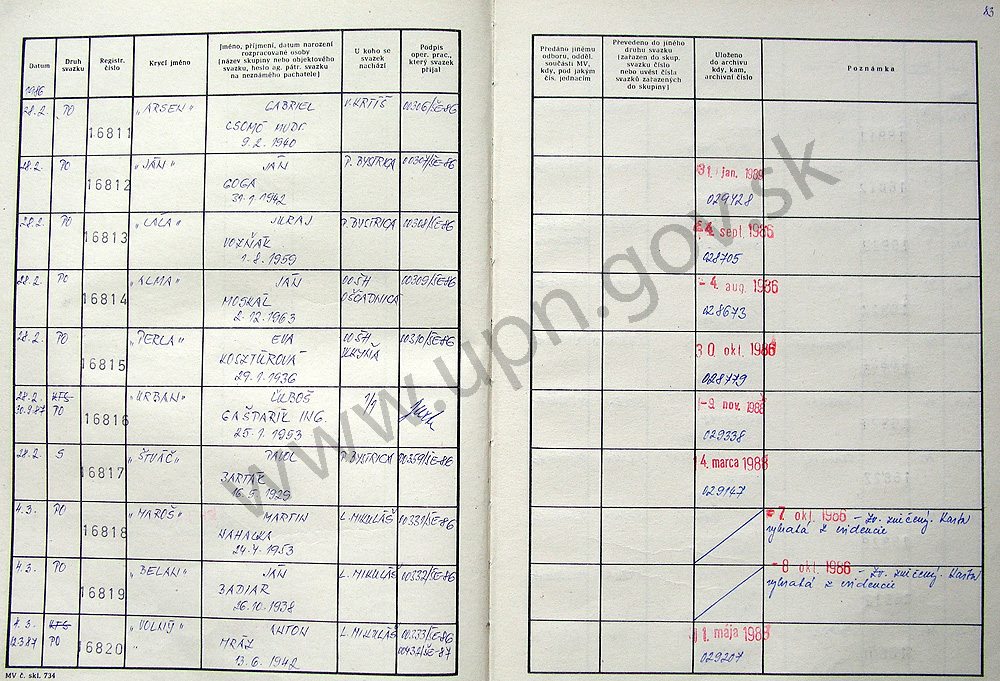 83
Datum
Druh svazku
Registr. číslo
Krycí jméno
Jméno, příjmení, datum narození
rozpracované osoby
(název skupiny nebo objektového
svazku, heslo ag. pátr. svazku
na neznámého pachatele)
U koho se
svazek
nachází
Podpis
oper. prac.,
který svazek
přijal
Předáno jinému
odboru, odděl.
součásti MV,
kdy, pod jakým
čís. jednacím
Převedeno do jiného
druhu svazku
(zařazen do skup.
svazku číslo
nebo uvést čísla
svazků zařazených
do skupiny)
Uloženo
do archivu
kdy, kam,
archivní číslo
Poznámka
1986
28.2. PO 16811 "ARSEN" GABRIEL V. KRTÍŠ 00306/ŠE-86
CSOMÓ MUDr.
9.2.1940
28.2. PO 16812 "JÁN" JÁN P. BYSTRICA 00307/ŠE-86 31. jan. 1989
GOGA 029428
31.1.1942
28.2. PO 16813 "LALA" JURAJ P. BYSTRICA 00308/ŠE-86 4. sept. 1986
VOZŇÁK 028705
1.8.1959
28.2. PO 16814 "ALMA" JÁN OOŠH 00309/ŠE-86 - 4. aug. 1986
MOSKÁL OŠČADNICA 028673
2.12.1963
28.2. PO 16815 "PERLA" EVA OOŠH 00310/ŠE-86 30. okt. 1986
KOSZTÚROVÁ 028779
29.1.1936
28.2. KTS 16816 "URBAN" ĽUBOŠ 1/1 -9. nov. 1988
30.9.87 PO GAŠPARÍK ING. 029338
25.1.1953
28.2. S 16817 "ŠTVÁČ" PAVOL P. BYSTRICA 00359/ŠE-86 14. marca 1988
BARTÁK 029147
16.9.1929
4.3. PO 16818 "MAROŠ" MARTIN L. MIKULÁŠ 00331/ŠE-86 -7. okt. 1986 - Zv. zničený. Karta
HAHALKA vybratá z evidencie
24.4.1953
4.3. PO 16819 "BELAN" JÁN L. MIKULÁŠ 00332/ŠE-86 -8. okt. 1986 - Zv. zničený. Karta
BADIAR vybratá z evidencie
26.10.1938
4.3. KTS 16820 "VOLNÝ" ANTON L. MIKULÁŠ 00333/ŠE-86 11. mája 1988
12.3.87 PO MRÁZ 00432/ŠE-87 029207
13.6.1942
MV č. skl. 734
www.upn.gov.sk